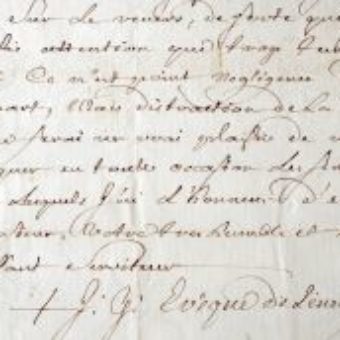 sur le revers, de sorte que
attention que trop
Ce n'est point négligence
part, Mais distraction de la
serai un vrai plaisir de
quer en toute occasion les
lesquels J'ai l'honneur d'e
Votre tres humble et
sant serviteur
+ J. G. Evêque de